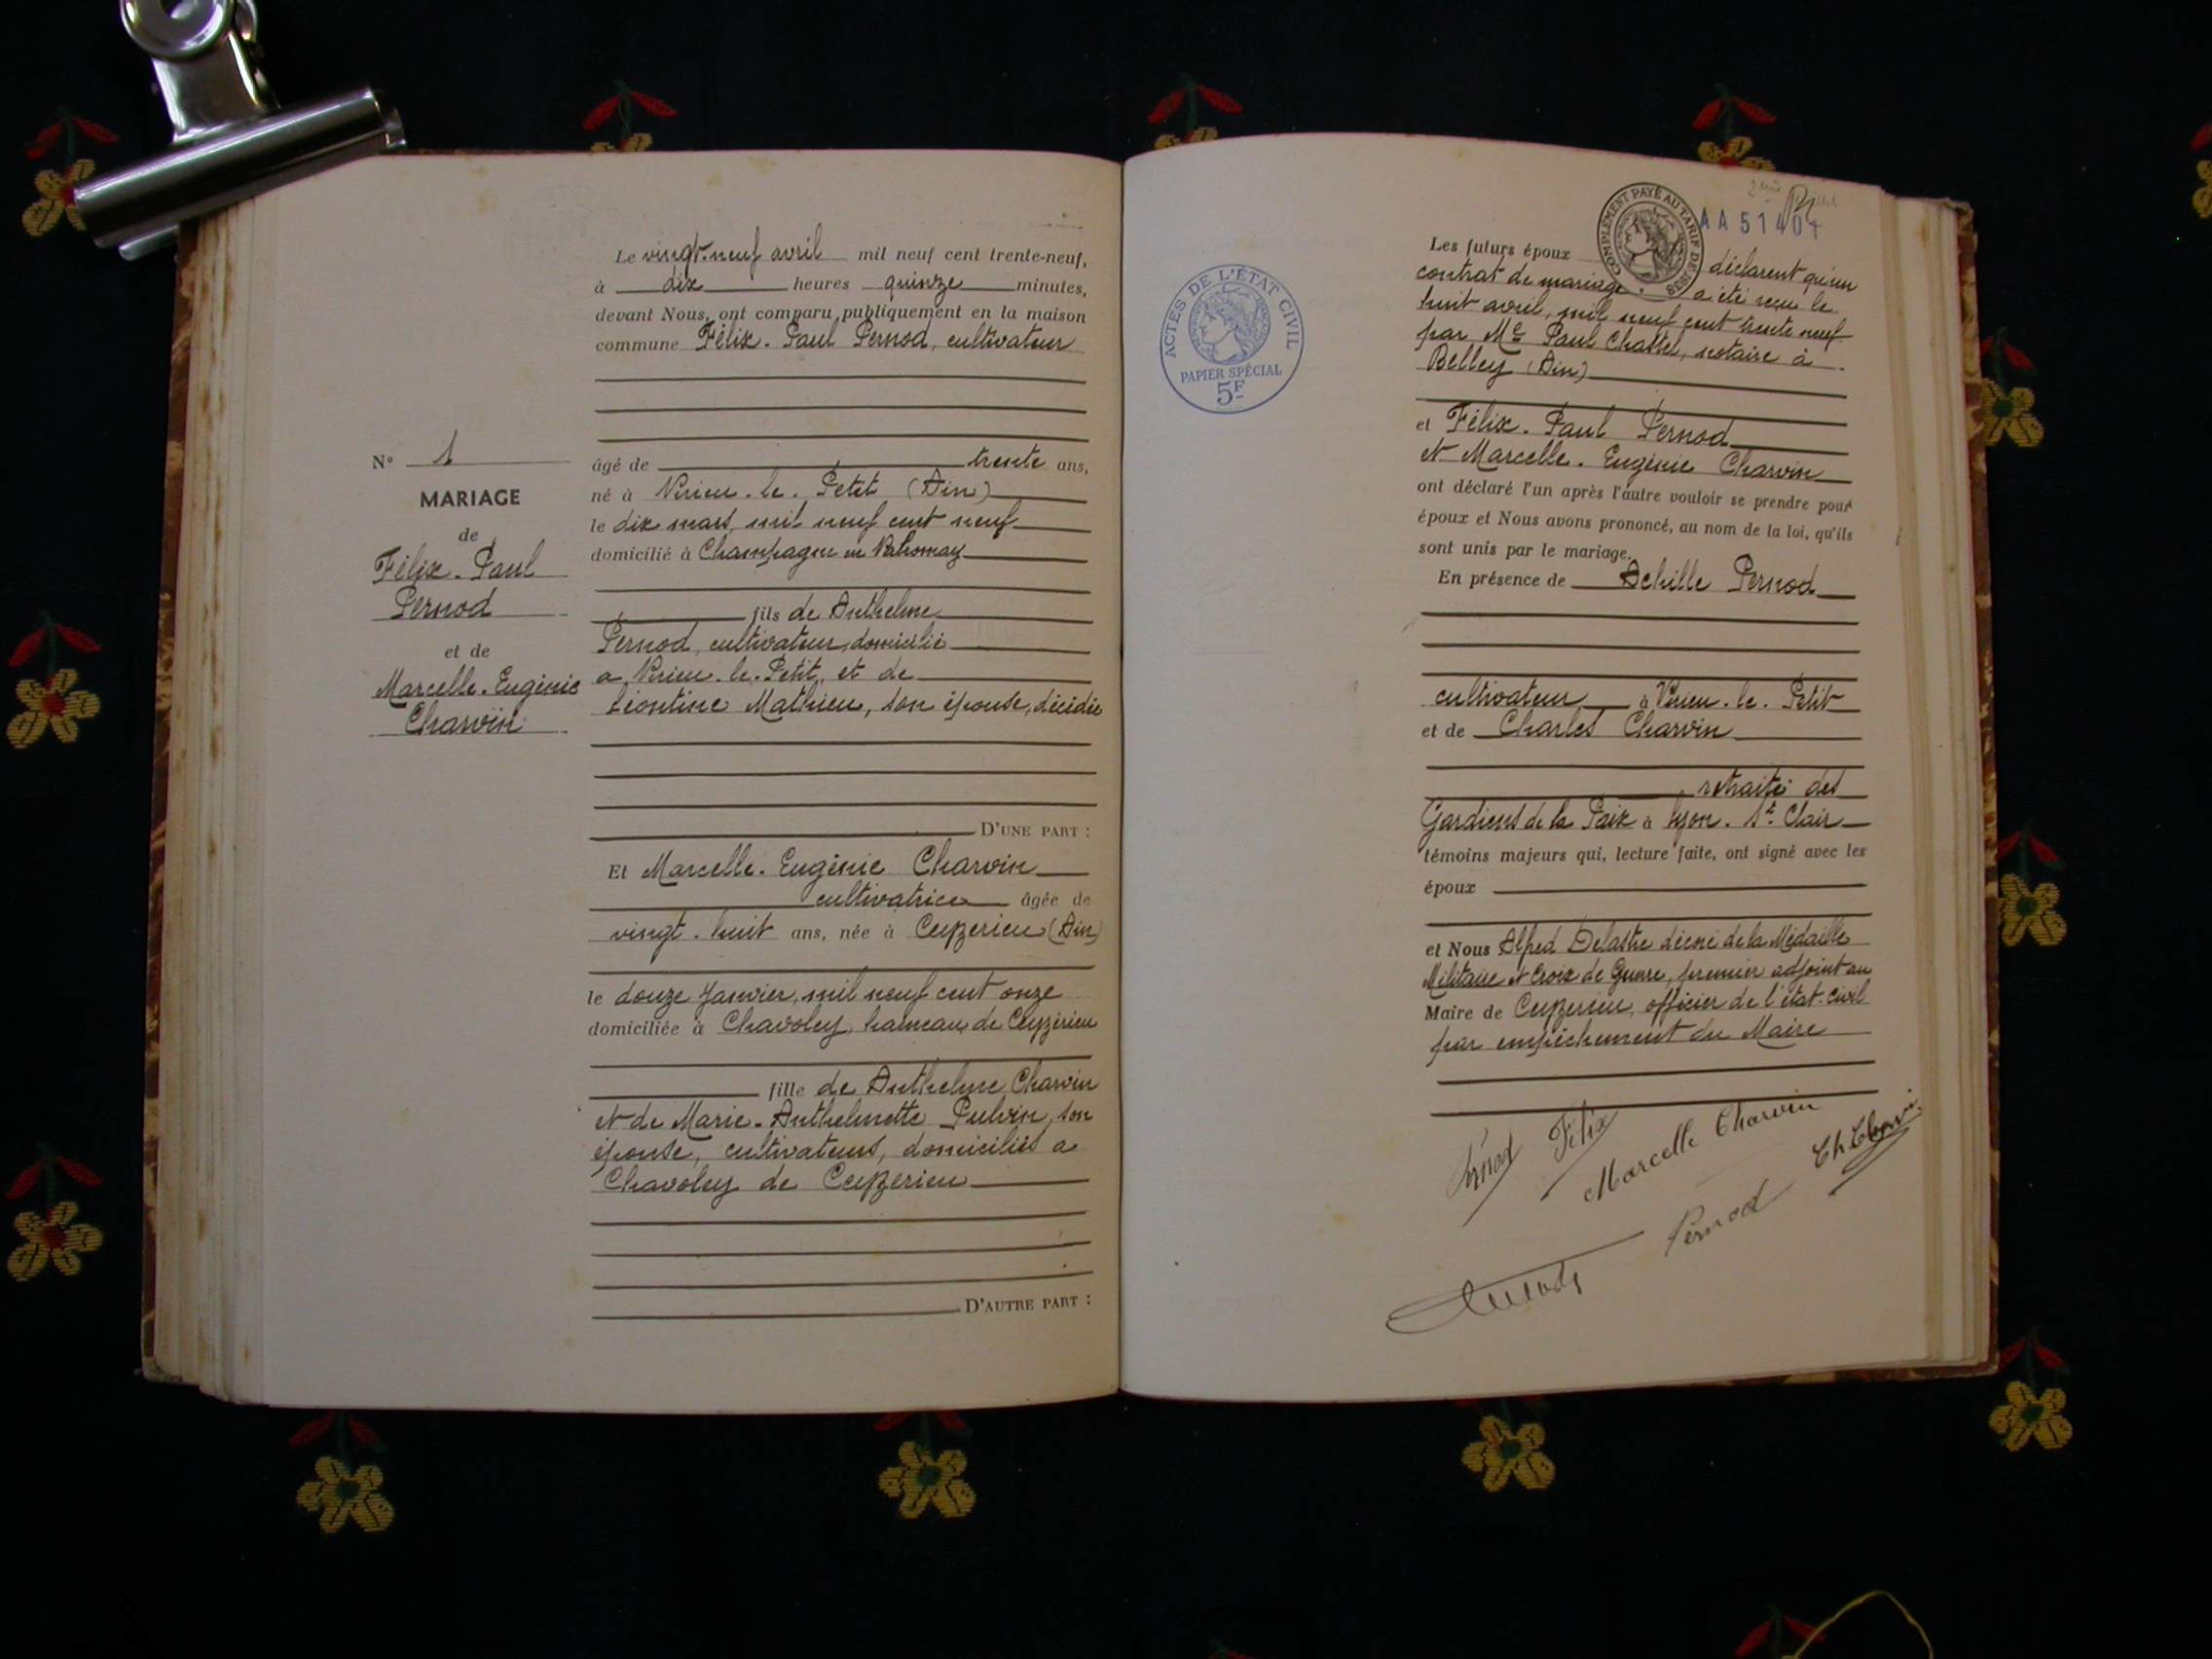 N° 1
MARIAGE
de
Félix. Paul
Pernod
et de
Marcelle. Eugénie
Charvin
Le vingt-neuf avril mil neuf cent trente-neuf,
à dix heures quinze minutes,
devant Nous, ont comparu publiquement en la maison
commune Félix. Paul Pernod, cultivateur
âgé de trente ans,
né à Virieu. le. Petit (Ain)
le dix mars, mil neuf cent neuf
domicilié à Champagne en Valromey
fils de Anthelme
Pernod, cultivateur, domicilié
a Virieu. le. Petit, et de
Léontine Mathieu, son épouse, décédée
D'UNE PART :
Et Marcelle. Eugénie Charvin
cultivatrice âgée de
vingt. huit ans, née à Ceyzerieu (Ain)
le douze Janvier, mil neuf cent onze
domiciliée à Chavoley, hameau de Ceyzérieu
fille de Anthelme Charvin
et de Marie. Anthelmette Pulvin, son
épouse, cultivateurs, domiciliés a
Chavoley de Ceyzerieu
D'AUTRE PART :
ACTES DE L'ÉTAT CIVIL
PAPIER SPÉCIAL
5F
COMPLÉMENT PAYÉ AU TARIF DE 1938
AA 51404
Les futurs époux déclarent qu'un
contrat de mariage a été reçu le
huit avril, mil neuf cent trente neuf
par Me Paul Chattel, notaire à
Belley (Ain)
et Félix. Paul Pernod
et Marcelle. Eugénie Charvin
ont déclaré l'un après l'autre vouloir se prendre pour
époux et Nous avons prononcé, au nom de la loi, qu'ils
sont unis par le mariage.
En présence de Achille Pernod
cultivateur à Virieu. le. Petit
et de Charles Charvin
retraité des
Gardiens de la Paix à Lyon. St. Clair
témoins majeurs qui, lecture faite, ont signé avec les
époux
et Nous Alfred Delastre décoré de la Médaille
Militaire et Croix de Guerre, premier adjoint au
Maire de Ceyzerieu, officier de l'état-civil
par empêchement du Maire
Pernod Félix
Marcelle Charvin
Ch Charvin
Pernod